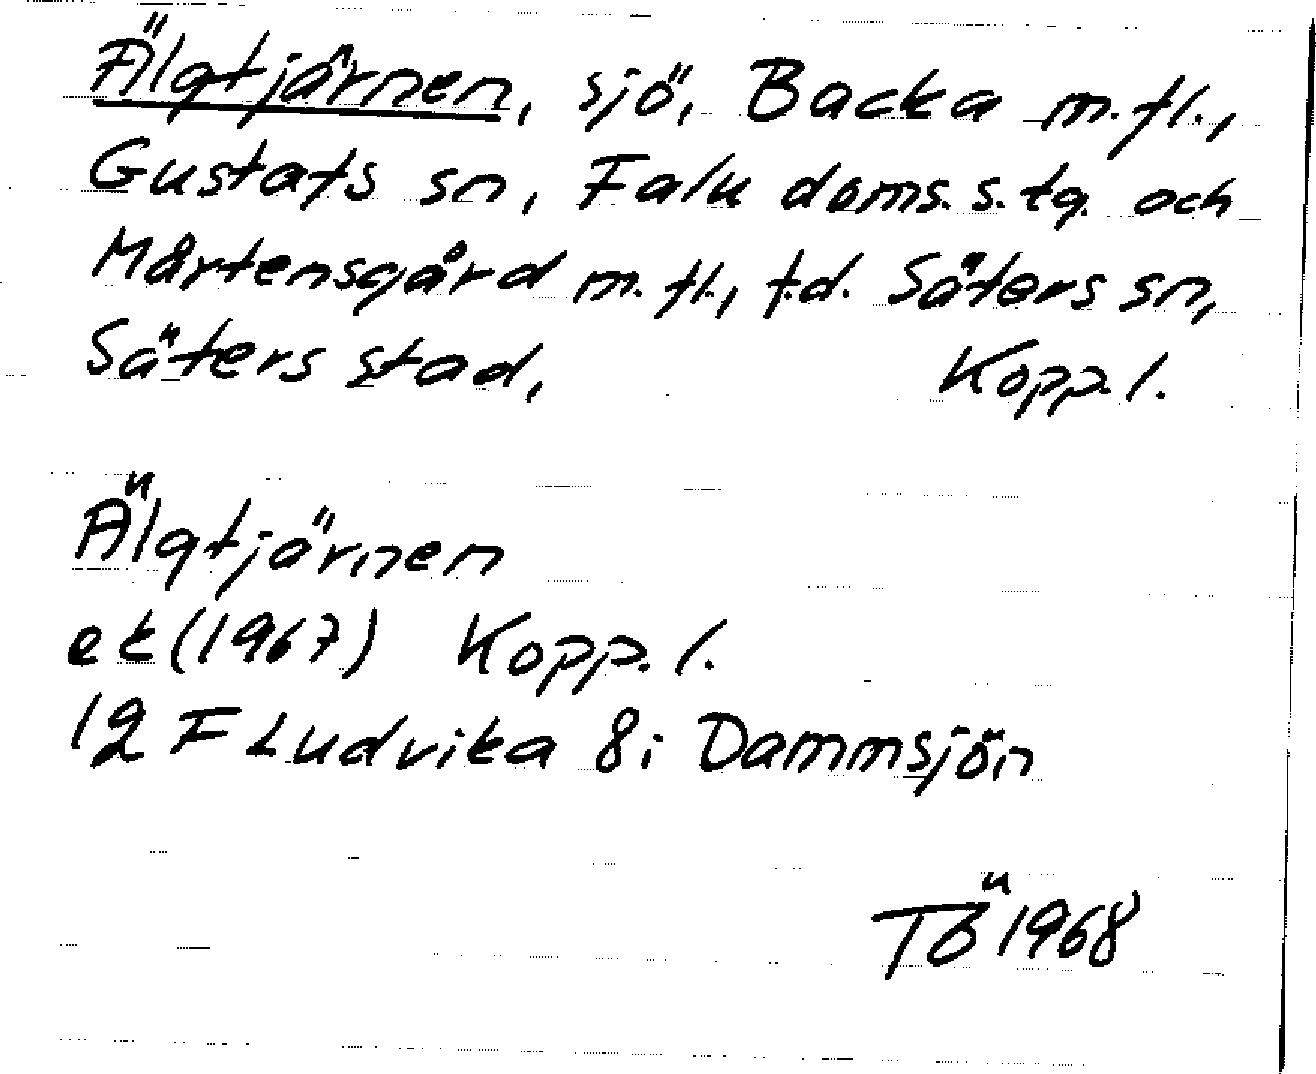 Älgtjärnen, sjö, Backa m.fl.,
Gustafs sn, Falu doms. s. tg. och
Mårtensgård m.fl., f.d. Säters sn,
Säters stad, Kopp. l.
Älgtjärnen
ek (1967) Kopp. l.
12 F Ludvika 8i Dammsjön
TÖ 1968